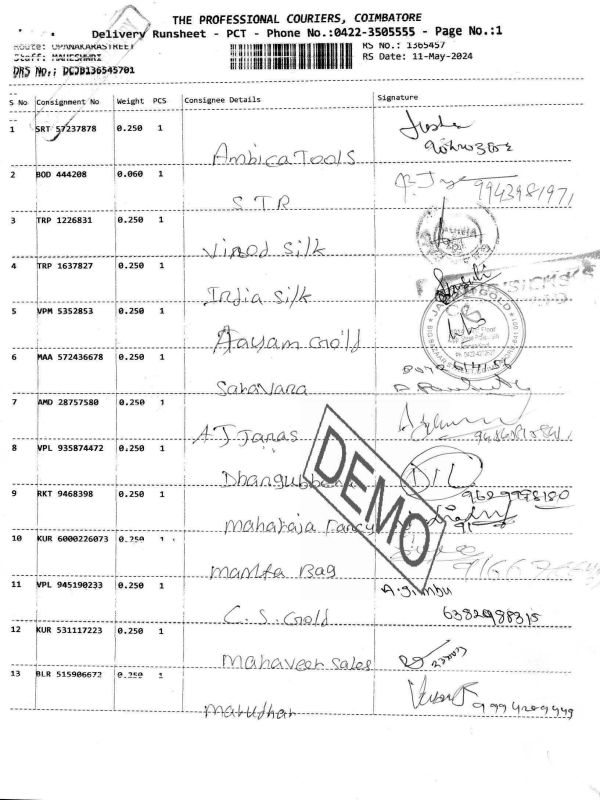 THE PROFESSIONAL COURIERS, COIMBATORE
Delivery Runsheet - PCT - Phone No.:0422-3505555 - Page No.:1
Route: OPANAKARASTREET
RS No.: 1365457
Staff: MAHESHWRI
RS Date: 11-May-2024
DRS No.: DCJB136545701
S No Consignment No Weight PCS Consignee Details Signature
1 SRT 57237878 0.250 1
Ambica Tools
2 BOD 444208 0.060 1
S T R 9943981971
3 TRP 1226831 0.250 1
Vinod Silk
4 TRP 1637827 0.250 1
India Silk
5 VPM 5352853 0.250 1
Aayam Gold
6 MAA 572436678 0.250 1
Saravana
7 AMD 28757580 0.250 1
A J Janas
8 VPL 935874472 0.250 1
9629998180
9 RKT 9468398 0.250 1
Maharaja Fancy
10 KUR 6000226073 0.250 1
Mamta Bag
11 VPL 945190233 0.250 1
C. S. Gold 6382988315
12 KUR 531117223 0.250 1
Mahaveer Sales
13 BLR 515906672 0.250 1
Marudhar 9994209449
DEMO